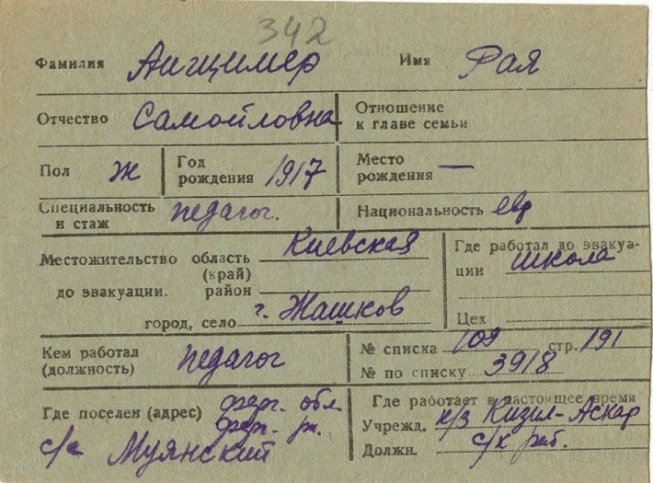 342
Фамилия Анцимер Имя Рая
Отчество Самойловна Отношение к главе семьи
Пол Ж Год рождения 1917 Место рождения —
Специальность и стаж педагог. Национальность евр
Местожительство область Киевская
(край)
до эвакуации. район
город, село г. Жашков
Где работал до эвакуа-
ции школа
Цех
Кем работал
(должность) педагог
№ списка 109 стр. 191
№ по списку 3918
Где поселен (адрес) ферг. обл.
ферг. рн.
с/с Муянский
Где работает в настоящее время
Учрежд. к/з Кизил-Аскар
Должн. с/х раб.